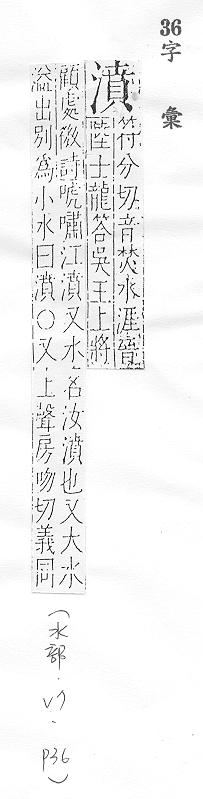 36
字彙
濆
符分切音焚水涯晉
陸士龍答吳王上將
顧處微詩哮嘯江濆又水名汝濆也又大水
溢出別爲小水曰濆〇又上聲房吻切義同
(水部·V7·P36)